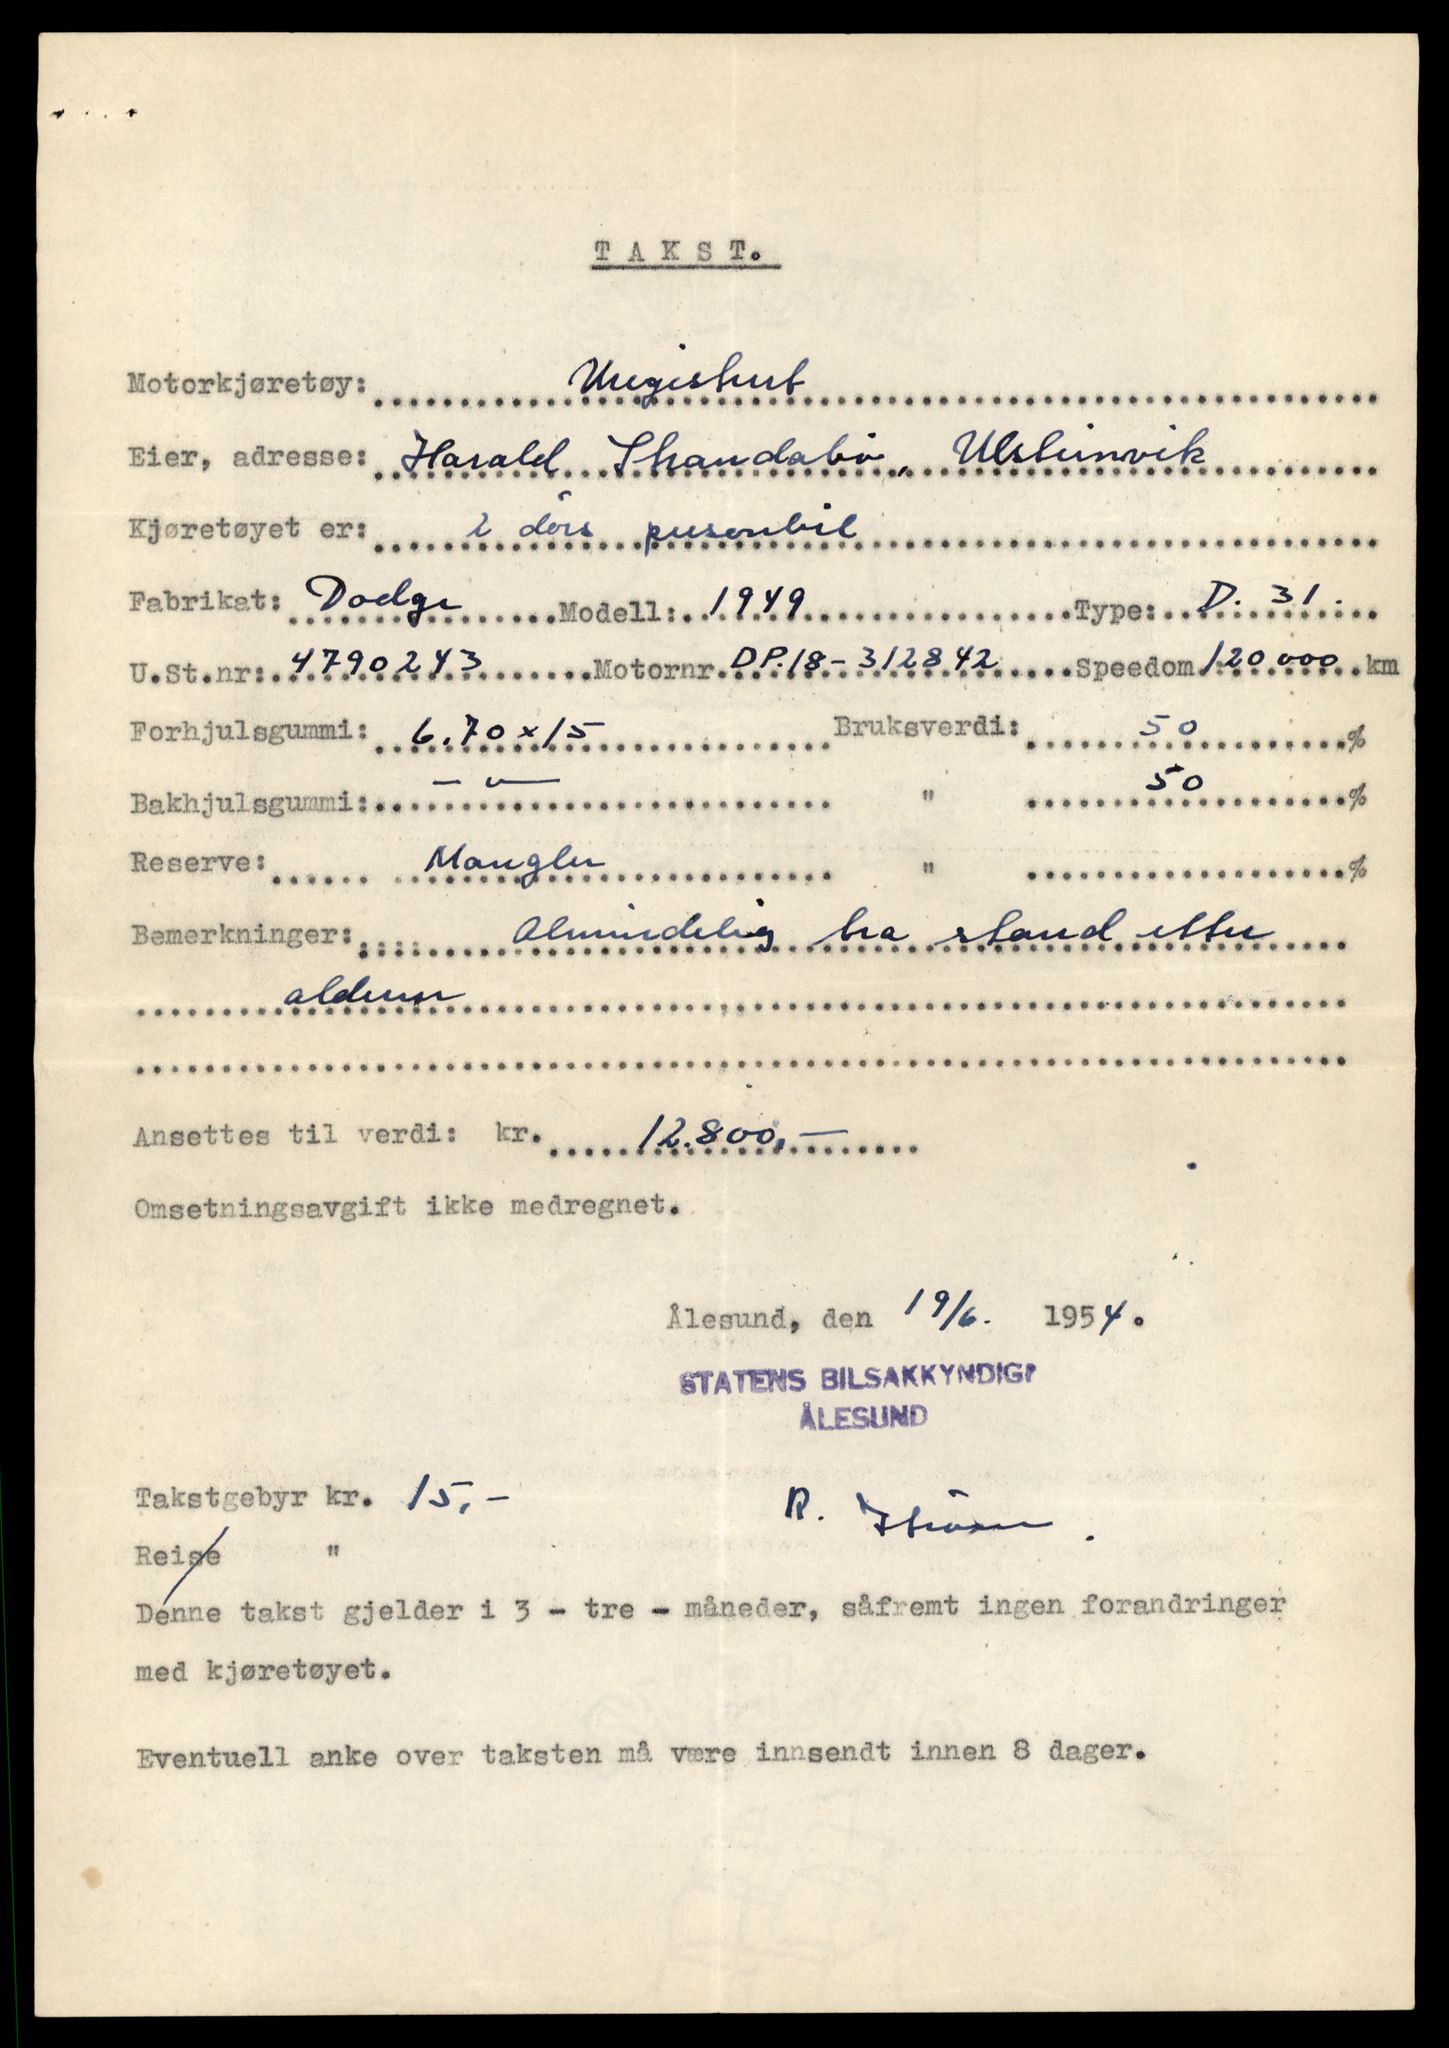 TAKST.
Motorkjøretøy: Uregistrert
Eier, adresse: Harald Strandabø, Ulsteinvik
Kjøretøyet er: 2 dörs personbil
Fabrikat: Dodge Modell: 1949 Type: D. 31.
U.St.nr: 4790243 Motornr. DP.18-312842 Speedom 120000 km
Forhjulsgummi: 6.70 x 15 Bruksverdi: 50 %
Bakhjulsgummi: — " — " 50 %
Reserve: Mangler " %
Bemerkninger: Almindelig bra stand etter
alderen
Ansettes til verdi: kr. 12.800,-
Omsetningsavgift ikke medregnet.
Ålesund, den 19/6. 1954.
STATENS BILSAKKYNDIGE
ÅLESUND
Takstgebyr kr. 15,-
R.
Reise "
Denne takst gjelder i 3 - tre - måneder, såfremt ingen forandringer
med kjøretøyet.
Eventuell anke over taksten må være innsendt innen 8 dager.